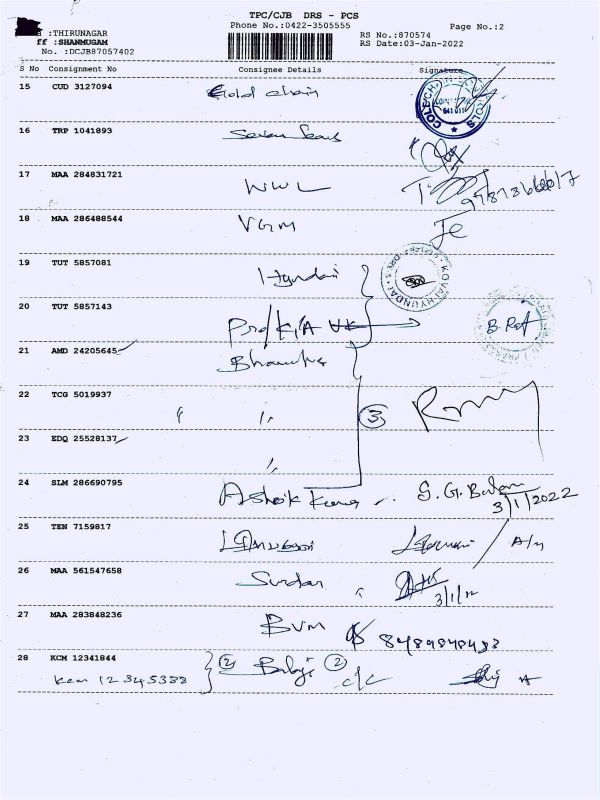 TPC/CJB DRS - PCS
:THIRUNAGAR Phone No.:0422-3505555 Page No.:2
ff :SHANMUGAM RS No.:870574
No. :DCJB87057402 RS Date:03-Jan-2022
S No Consignment No Consignee Details Signature
15 CUD 3127094 Gold chain
16 TRP 1041893 Seven Seas
17 MAA 284831721 WWL
18 MAA 286488544 VGM Je
19 TUT 5857081 Hyundai
KOVAI HYUNDAI
20 TUT 5857143 Pro/KIA B. Raj
21 AMD 24205645
22 TCG 5019937 " " 3
23 EDQ 25528137 "
24 SLM 286690795 Ashok Kumar S. G.
3/1/2022
25 TEN 7159817
26 MAA 561547658 Surdar
3/1/22
27 MAA 283848236 BVM 8489848493
28 KCM 12341844 2 Balaji 2
kcm 12345388 c/c